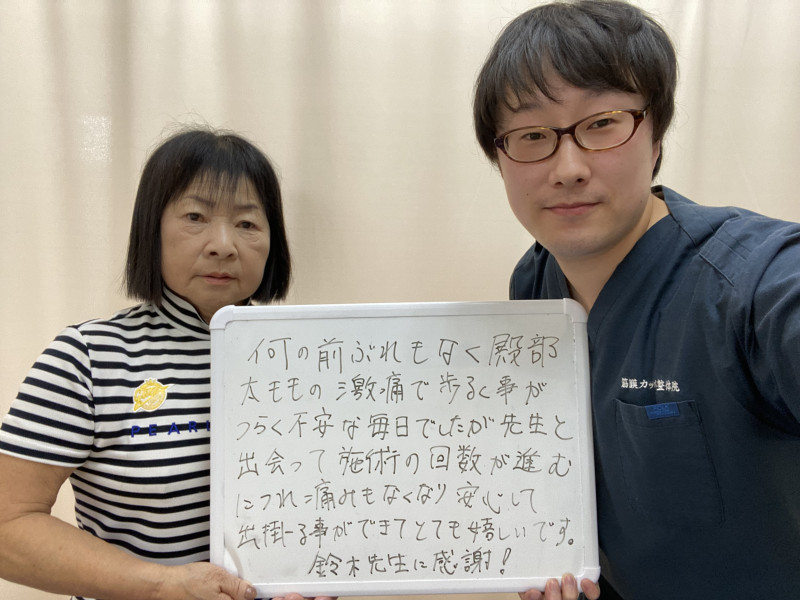 何の前ぶれもなく殿部
太ももの激痛で歩るく事が
つらく不安な毎日でしたが先生と
出会って施術の回数が進む
につれ痛みもなくなり安心して
出掛ける事ができてとても嬉しいです。
鈴木先生に感謝!
PEARL
筋膜カッパ整体院